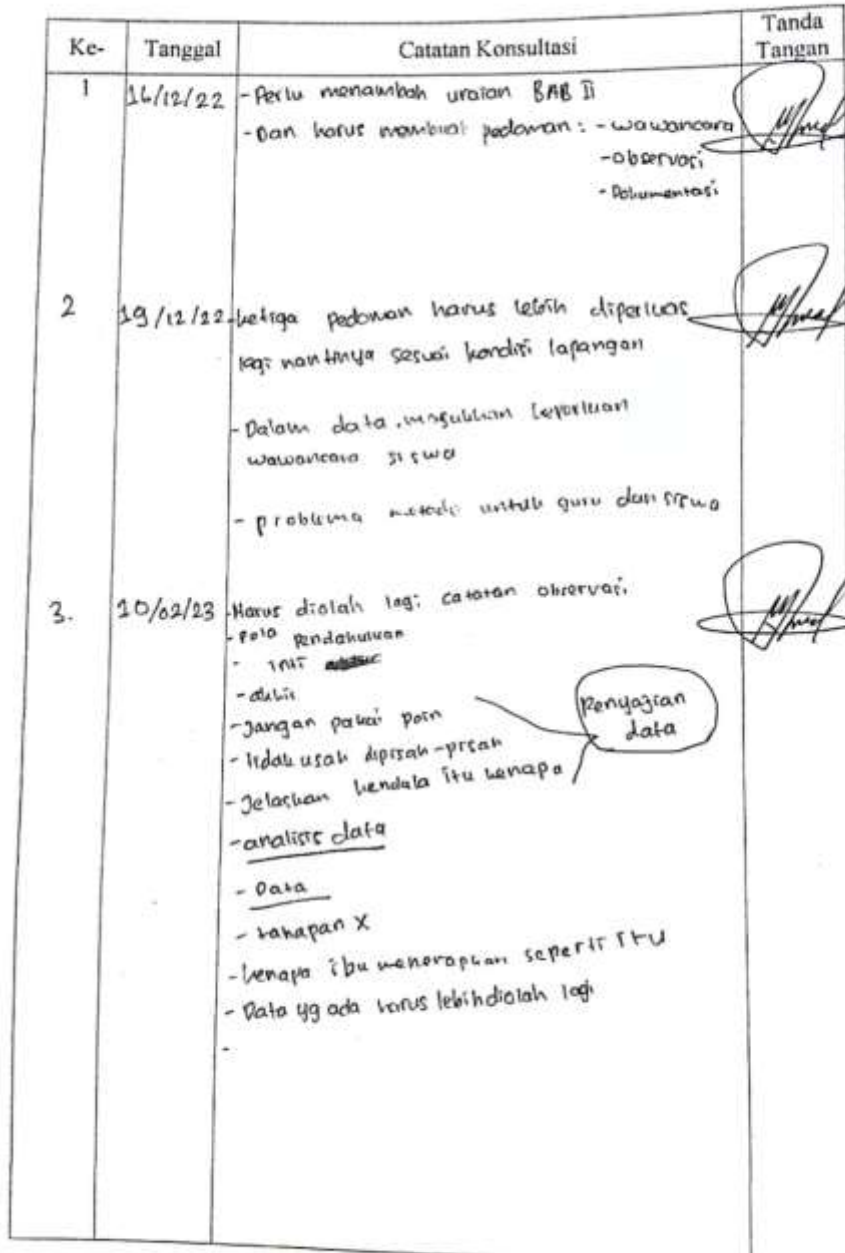 Ke- Tanggal Catatan Konsultasi Tanda Tangan
1 16/12/22 - Perlu menambah uraian BAB II
- Dan harus membuat pedoman : - wawancara
- observasi
- Dokumentasi
2 19/12/22 - ketiga pedoman harus lebih diperluas
lagi nantinya sesuai kondisi lapangan
- Dalam data, masukkan keperluan
wawancara siswa
- problema metode untuk guru dan siswa
3. 10/02/23 - Harus diolah lagi catatan observasi,
- Pola pendahuluan
- inti
- akhir
- Jangan pakai poin
- tidak usah dipisah-pisah
- Jelaskan kendala itu kenapa
Penyajian
data
- analisis data
- Data
- tahapan X
- kenapa ibu menerapkan seperti itu
- Data yg ada harus lebih diolah lagi
-